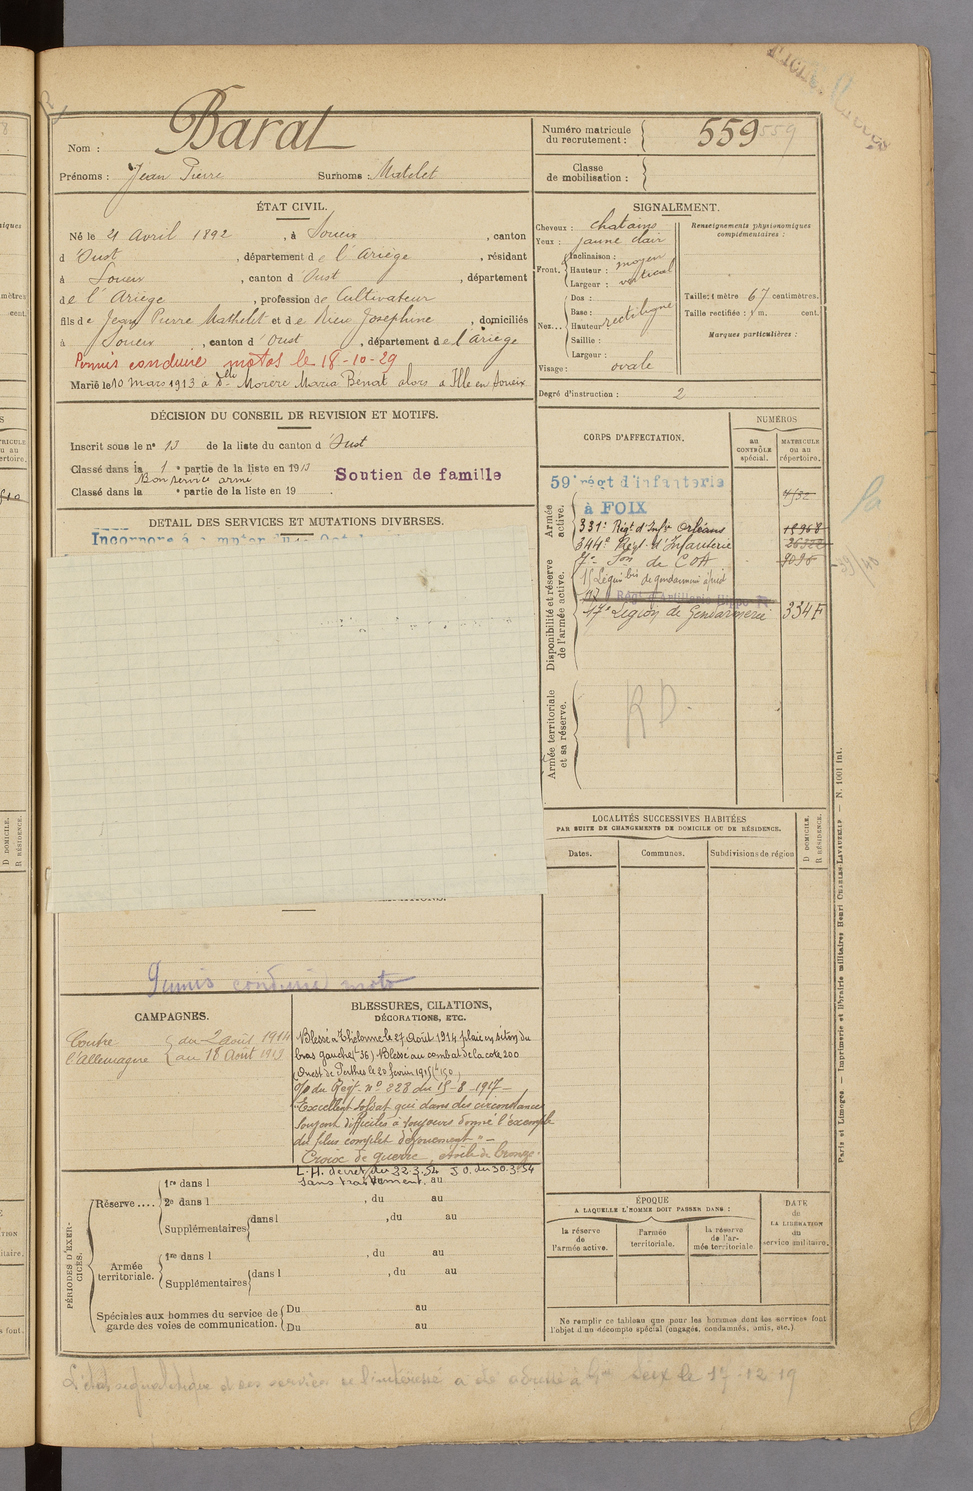 Nom : Barat
Prénoms : Jean Pierre Surnoms : Matelet
Numéro matricule du recrutement : 559 559
Classe de mobilisation :
ÉTAT CIVIL.
Né le 21 Avril 1892, à Soueix, canton
d'Oust, département de l'Ariège, résidant
à Soueix, canton d'Oust, département
de l'Ariège, profession de Cultivateur
fils de Jean Pierre Mathelet et de Rieu Joséphine, domiciliés
à Soueix, canton d'Oust, département de l'Ariège
Permis conduire motos le 18-10-29
Marié le 10 mars 1913 à Dlle Morère Maria Bénat alors à Ille en Soueix
DÉCISION DU CONSEIL DE REVISION ET MOTIFS.
Inscrit sous le no 13 de la liste du canton d'Oust
Classé dans la 1e partie de la liste en 1913
Bon service armé
Soutien de famille
Classé dans la e partie de la liste en 19
DETAIL DES SERVICES ET MUTATIONS DIVERSES.
Incorporé à compter du
Permis conduire moto
CAMPAGNES.
Contre l'Allemagne
du 2 août 1914
au 18 Août 1919
BLESSURES, CITATIONS,
DÉCORATIONS, ETC.
Blessé à Thélonne le 27 Août 1914 plaie en séton du
bras gauche Blessé au combat de la cote 200
Ouest de Perthes le 20 février 1915
o/o du Régt no 228 du 15-8-1917
"Excellent soldat qui dans des circonstances
souvent difficiles a toujours donné l'exemple
du plus complet dévouement"
Croix de guerre, étoile de bronze.
L.H. décret du 22.3.54 J.O. du 30.3.54
sans traitement.
PÉRIODES D'EXERCICES.
Réserve ....
1re dans l au
2e dans l , du au
Supplémentaires dans l , du au
Armée territoriale.
1re dans l , du au
Supplémentaires dans l , du au
Spéciales aux hommes du service de garde des voies de communication.
Du au
Du au
SIGNALEMENT.
Cheveux : chatains
Yeux : jaune clair
Front.
Inclinaison :
Hauteur : moyen
Largeur : vertical
Nez...
Dos :
Base :
Hauteur rectiligne
Saillie :
Largeur :
Visage : ovale
Renseignements physionomiques complémentaires :
Taille : 1 mètre 67 centimètres.
Taille rectifiée : 1 m. cent.
Marques particulières :
Degré d'instruction : 2
CORPS D'AFFECTATION.
NUMÉROS
au CONTRÔLE spécial.
MATRICULE ou au répertoire.
Armée active.
59e régt d'infanterie
à FOIX
331e Régt d'Infie Orléans
344e Régt d'Infanterie
Disponibilité et réserve de l'armée active.
17e Légion de Gendarmerie 334 F
Armée territoriale et sa réserve.
RD.
LOCALITÉS SUCCESSIVES HABITÉES
PAR SUITE DE CHANGEMENTS DE DOMICILE OU DE RÉSIDENCE.
Dates. Communes. Subdivisions de région
D DOMICILE.
R RÉSIDENCE.
ÉPOQUE
A LAQUELLE L'HOMME DOIT PASSER DANS :
la réserve de l'armée active.
l'armée territoriale.
la réserve de l'armée territoriale
DATE de LA LIBÉRATION du service militaire.
Ne remplir ce tableau que pour les hommes dont les services font
l'objet d'un décompte spécial (engagés, condamnés, omis, etc.).
Paris et Limoges. — Imprimerie et librairie militaires Henri CHARLES-LAVAUZELLE — N. 1001 int.
L'état signalétique des services de l'intéressé a été adressé à Seix le 17-12-19